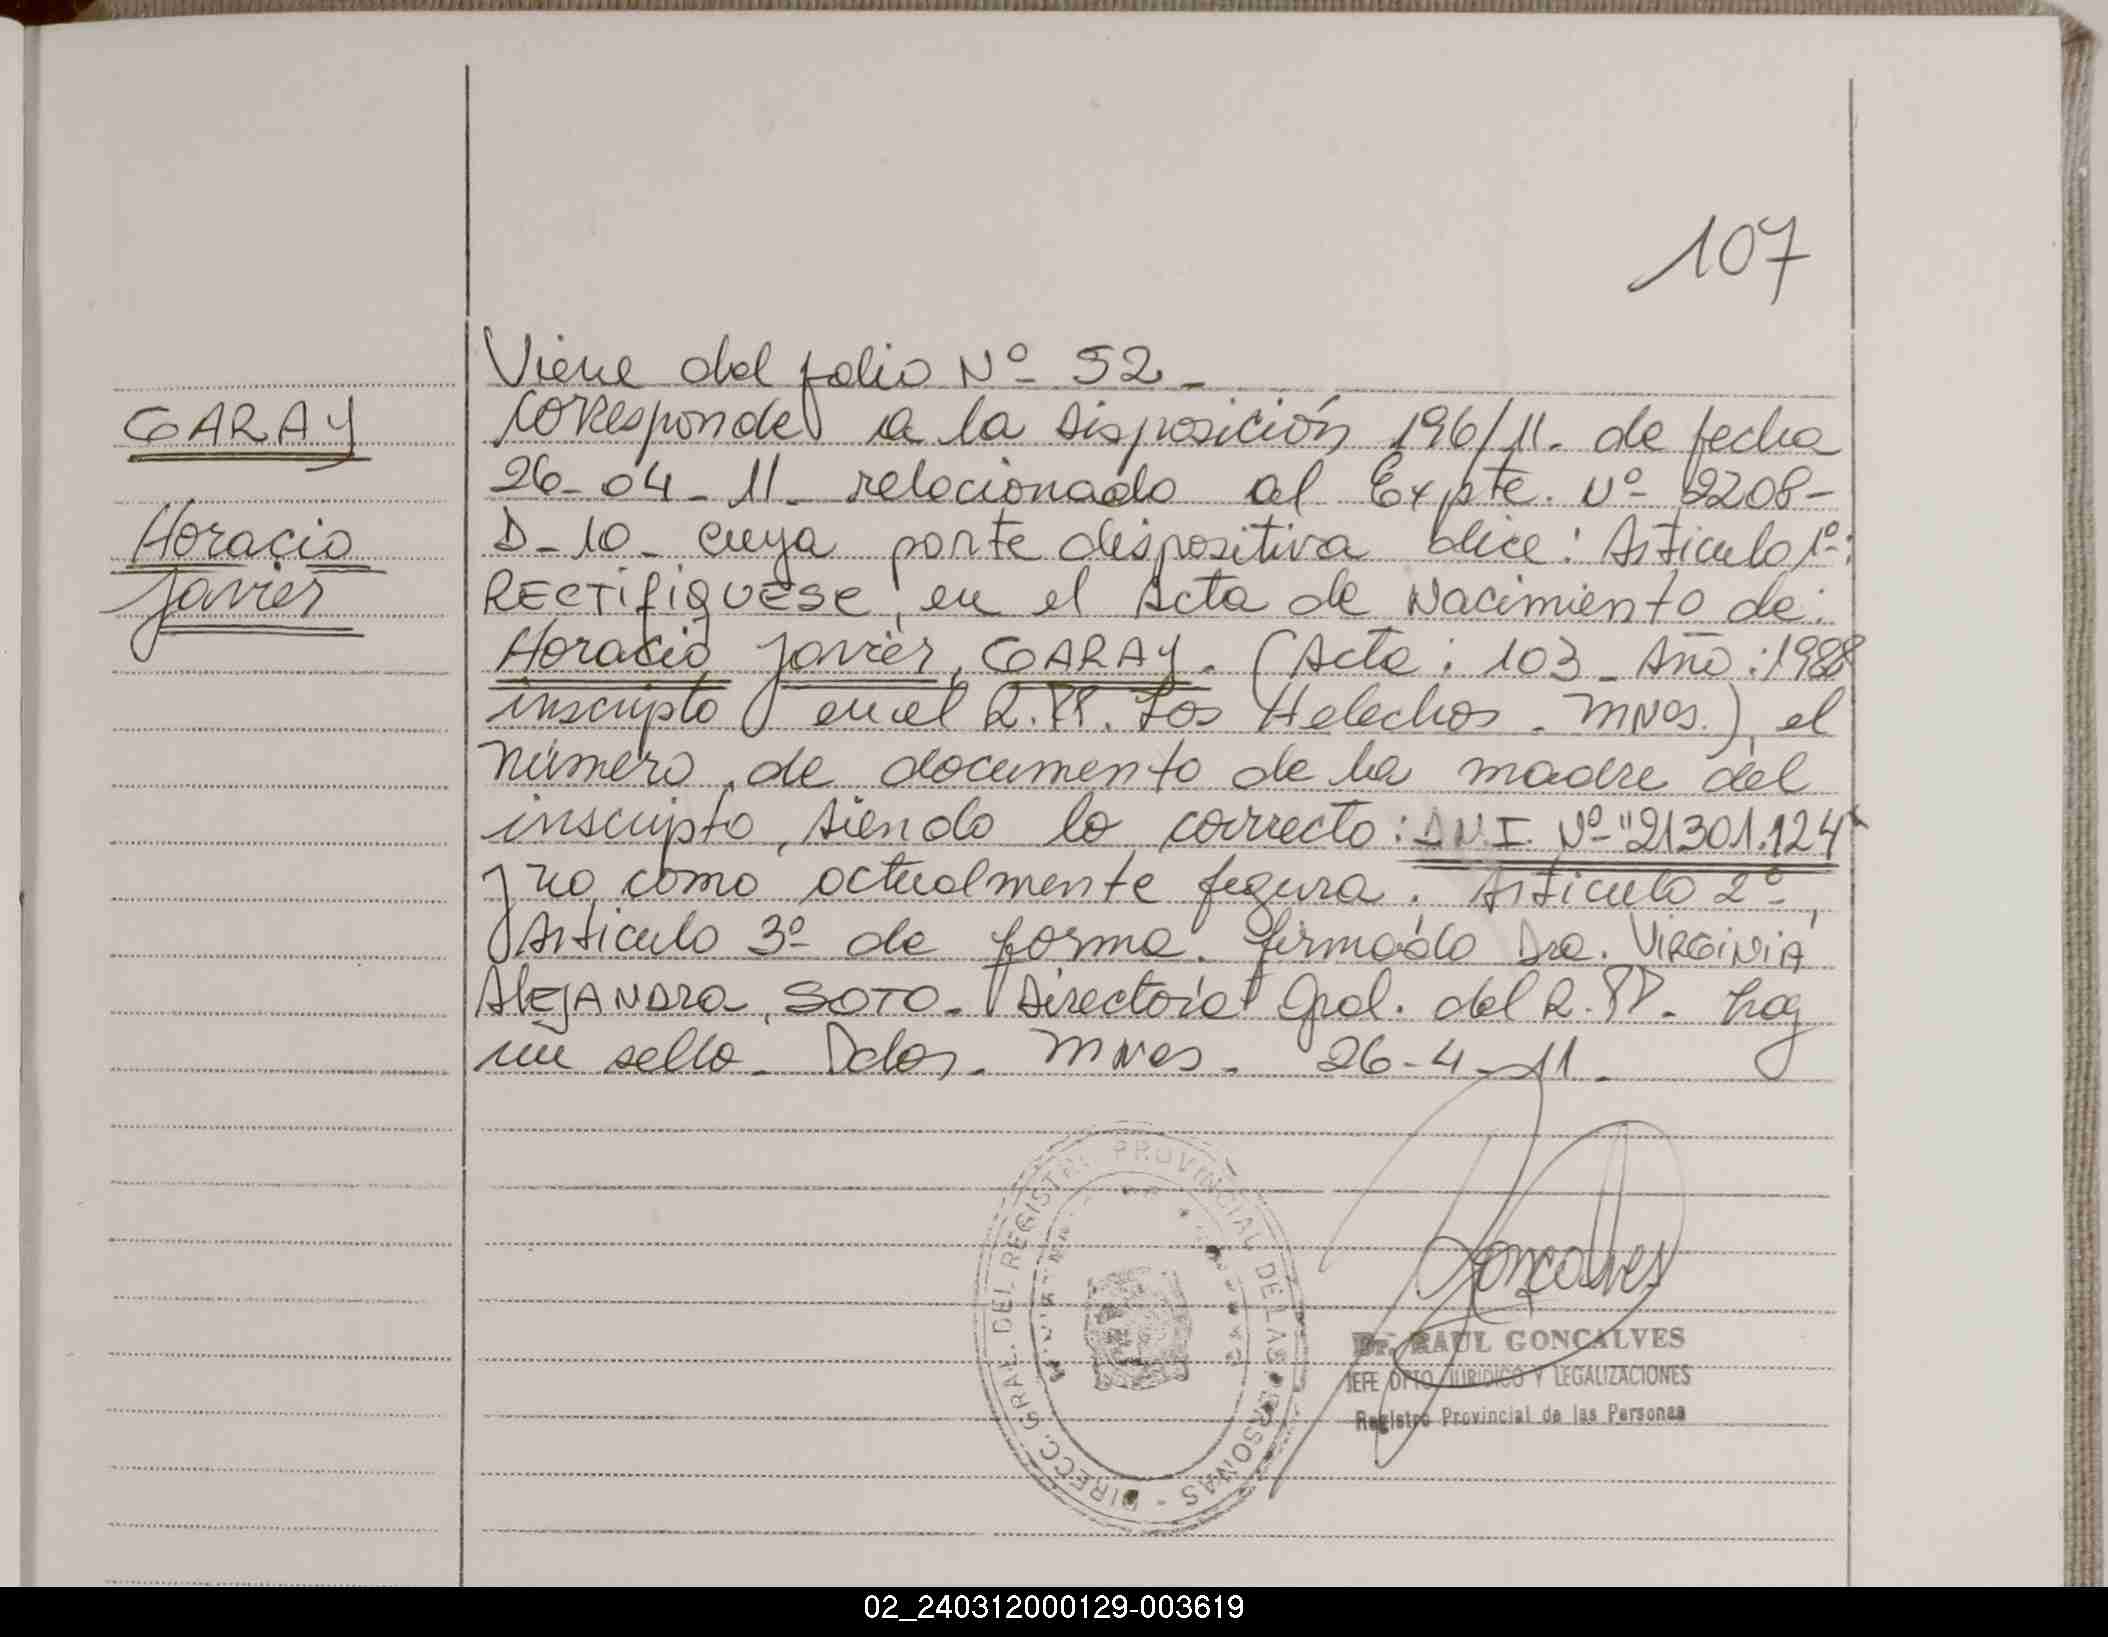 107
Viene del folio Nº 52 -
GARAY
Horacio
Javier
Corresponde a la disposición 196/11. de fecha
26-04-11- relacionado al Expte. Nº 2208-
D-10- cuya parte dispositiva dice: Articulo 1º:
RECTIFIQUESE, en el Acta de Nacimiento de:
Horacio Javier, GARAY. (Acta: 103 - Año: 1988
inscripto en el R.PP. Los Helechos - Mnes.), el
número de documento de la madre del
inscripto, siendo lo correcto: D.N.I. Nº "21301.124"
y no como actualmente figura. Articulo 2º,
Articulo 3º de forma. firmado Dra. VIRGINIA
ALEJANDRA, SOTO - Directora Gral. del R.PP. hay
un sello - Pdas. Mnes. 26-4-11.
DIRECC. GRAL. DEL REGISTRO PROVINCIAL DE LAS PERSONAS -
Goncalves
Dr. RAUL GONCALVES
JEFE DPTO JURIDICO Y LEGALIZACIONES
Registro Provincial de las Personas
02_240312000129-003619